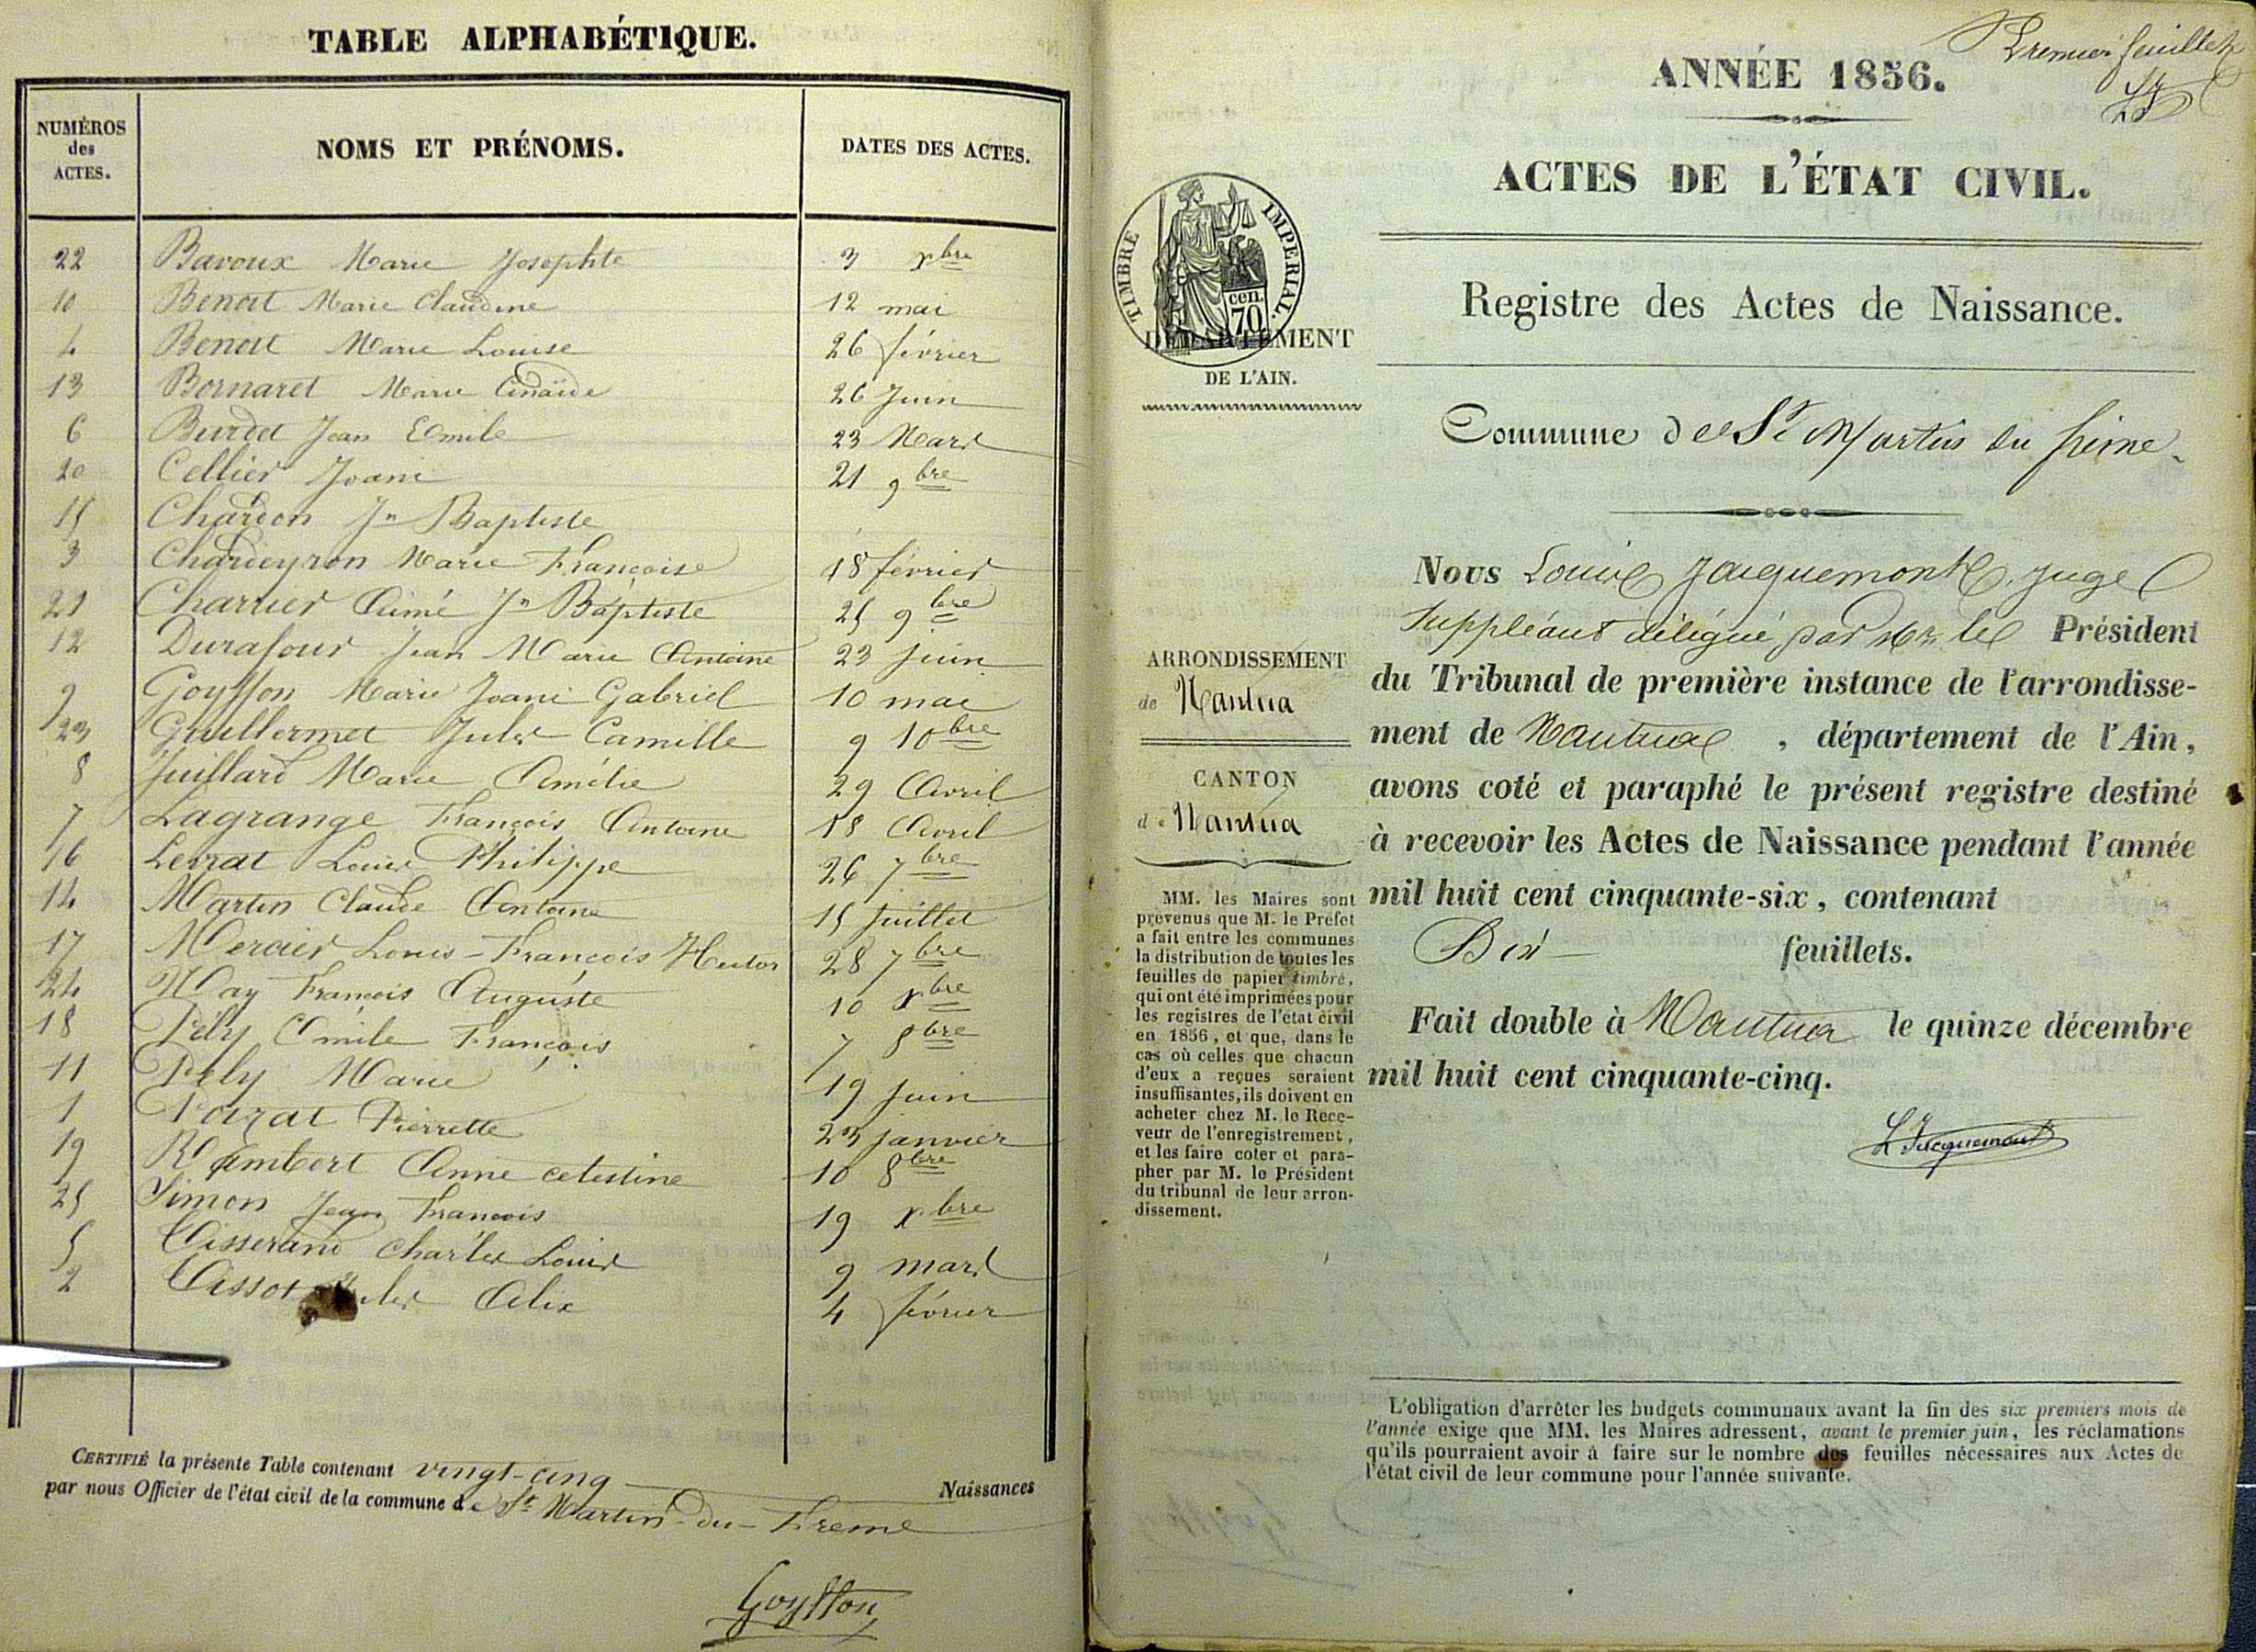 TABLE ALPHABÉTIQUE.
NUMÉROS des ACTES. NOMS ET PRÉNOMS. DATES DES ACTES.
22 Bavoux Marie Josephte 3 xbre
10 Benoit Marie Claudine 12 mai
4 Benoit Marie Louise 26 février
13 Bornaret Marie 26 Juin
6 Burdet Jean Emile 23 Mars
20 Cellier Joani 21 9bre
15 Chardon Jn Baptiste
3 Chardeyron Marie Françoise 18 février
21 Charrier Aimé Jn Baptiste 25 9bre
12 Durafour Jean Marie Antoine 23 juin
9 Goyffon Marie Joani Gabriel 10 mai
23 Guillermet Jules Camille 9 10bre
8 Juillard Marie Amélie 29 Avril
7 Lagrange François Antoine 18 Avril
16 Levrat Louis Philippe 26 7bre
14 Martin Claude Antoine 15 Juillet
17 Mercier Louis-François 28 7bre
24 May François Auguste 10 xbre
18 Pély Emile François 7 8bre
11 Pély Marie 19 juin
1 Pierrette 23 janvier
19 Rambert Anne celestine 10 8bre
25 Simon Jean François 19 xbre
5 Tisserand Charles Louis 9 mars
2 Tissot Jules Alix 4 février
CERTIFIÉ la présente Table contenant vingt-cinq Naissances
par nous Officier de l'état civil de la commune de St Martin-du-Frêne
Goyffon
Premier feuillet
LJ
ANNÉE 1856.
ACTES DE L'ÉTAT CIVIL.
TIMBRE IMPERIAL.
cen.
70
DÉPARTEMENT
DE L'AIN.
Registre des Actes de Naissance.
Commune de St Martin du frêne
ARRONDISSEMENT
de Nantua
CANTON
de Nantua
MM. les Maires sont
prévenus que M. le Préfet
a fait entre les communes
la distribution de toutes les
feuilles de papier timbré,
qui ont été imprimées pour
les registres de l'état civil
en 1856, et que, dans le
cas où celles que chacun
d'eux a reçues seraient
insuffisantes, ils doivent en
acheter chez M. le Rece-
veur de l'enregistrement,
et les faire coter et para-
pher par M. le Président
du tribunal de leur arron-
dissement.
Nous Louis Jacquemont, juge
Suppléant délégué par Mr le Président
du Tribunal de première instance de l'arrondisse-
ment de Nantua, département de l'Ain,
avons coté et paraphé le présent registre destiné
à recevoir les Actes de Naissance pendant l'année
mil huit cent cinquante-six, contenant
Dix feuillets.
Fait double à Nantua le quinze décembre
mil huit cent cinquante-cinq.
L Jacquemont
L'obligation d'arrêter les budgets communaux avant la fin des six premiers mois de
l'année exige que MM. les Maires adressent, avant le premier juin, les réclamations
qu'ils pourraient avoir à faire sur le nombre des feuilles nécessaires aux Actes de
l'état civil de leur commune pour l'année suivante.